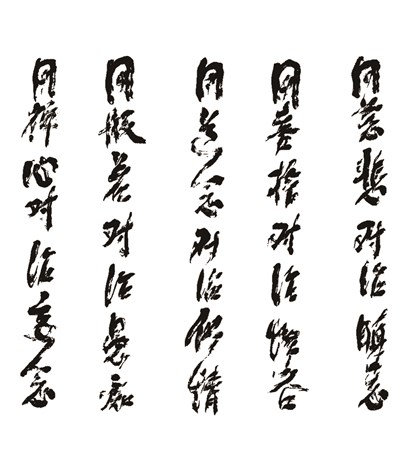 用慈悲对治瞋恚
用喜捨对治慳吝
用道念对治俗情
用般若对治愚痴
用禅心对治妄念